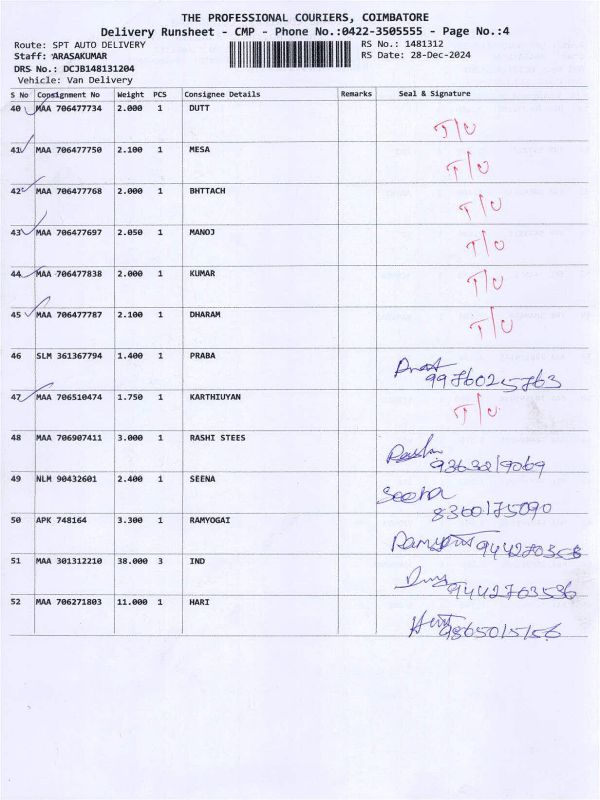 THE PROFESSIONAL COURIERS, COIMBATORE
Delivery Runsheet - CMP - Phone No.:0422-3505555 - Page No.:4
Route: SPT AUTO DELIVERY RS No.: 1481312
Staff: ARASAKUMAR RS Date: 28-Dec-2024
DRS No.: DCJB148131204
Vehicle: Van Delivery
S No Consignment No Weight PCS Consignee Details Remarks Seal & Signature
40 MAA 706477734 2.000 1 DUTT T/U
41 MAA 706477750 2.100 1 MESA T/U
42 MAA 706477768 2.000 1 BHTTACH T/U
43 MAA 706477697 2.050 1 MANOJ T/U
44 MAA 706477838 2.000 1 KUMAR T/U
45 MAA 706477787 2.100 1 DHARAM T/U
46 SLM 361367794 1.400 1 PRABA
9976025763
47 MAA 706510474 1.750 1 KARTHIUYAN T/U
48 MAA 706907411 3.000 1 RASHI STEES
9363219069
49 NLM 90432601 2.400 1 SEENA Seena
8360175090
50 APK 748164 3.300 1 RAMYOGAI
9442270353
51 MAA 301312210 38.000 3 IND
9442763536
52 MAA 706271803 11.000 1 HARI
9865015156